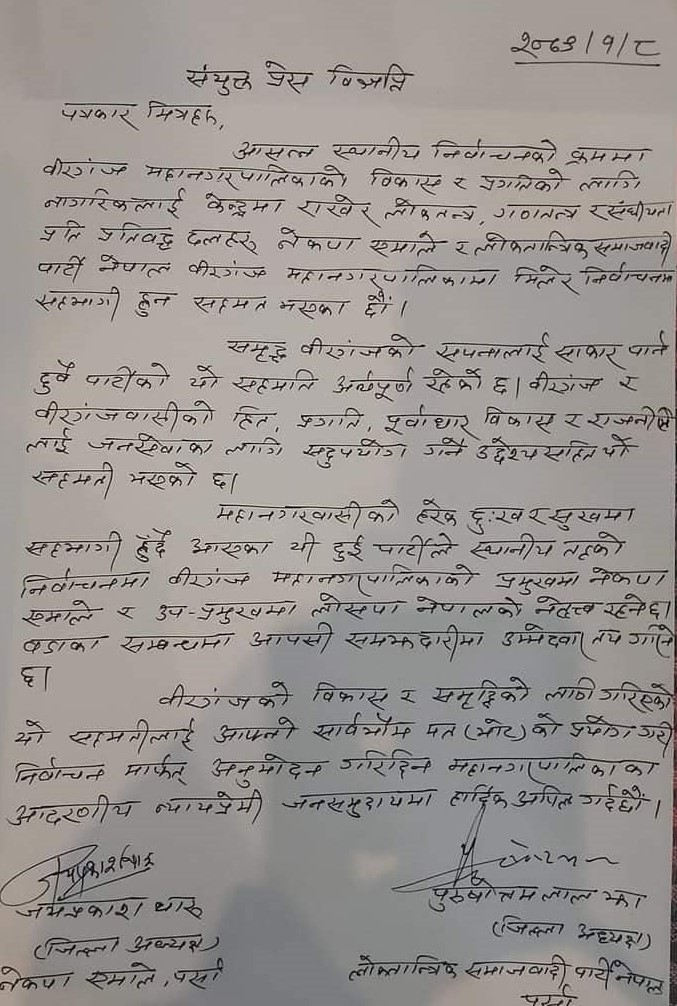 २०७९/१/८
संयुक्त प्रेस विज्ञप्ति
पत्रकार मित्रहरु,
आसन्न स्थानीय निर्वाचनको क्रममा
वीरगंज महानगरपालिकाको विकास र प्रगतिको लागि
नागरिकलाई केन्द्रमा राखेर लोकतन्त्र, गणतन्त्र र संघीयता
प्रति प्रतिवद्ध दलहरु नेकपा एमाले र लोकतान्त्रिक समाजवादी
पार्टी नेपाल वीरगंज महानगरपालिकामा मिलेर निर्वाचनमा
सहभागी हुन सहमत भएका छौं ।
समृद्ध वीरगंजको सपनालाई साकार पार्न
दुवै पार्टीको यो सहमति अर्थपूर्ण रहेको छ। वीरगंज र
वीरगंजवासीको हित, प्रगति, पूर्वाधार विकास र राजनीति
लाई जनसेवाका लागि सदुपयोग गर्ने उद्देश्य सहित यो
सहमती भएको छ।
महानगरवासीको हरेक दुःख र सुखमा
सहभागी हुँदै आएका यी दुई पार्टीले स्थानीय तहको
निर्वाचनमा वीरगंज महानगरपालिकाको प्रमुखमा नेकपा
एमाले र उप-प्रमुखमा लोसपा नेपालको नेतृत्व रहनेछ।
वडाका सम्बन्धमा आपसी समझदारीमा उम्मेदवार तय गरिने
छ।
वीरगंजको विकास र समृद्धिको लागी गरिएको
यो सहमतीलाई आफ्नो सार्वभौम मत (भोट) को प्रयोग गरी
निर्वाचन मार्फत् अनुमोदन गरिदिन महानगरपालिकाका
आदरणीय न्यायप्रेमी जनसमुदायमा हार्दिक अपिल गर्दछौं ।
जयप्रकाश थारु
(जिल्ला अध्यक्ष)
नेकपा एमाले, पर्सा
पुरुषोत्तम लाल झा
(जिल्ला अध्यक्ष)
लोकतान्त्रिक समाजवादी पार्टी नेपाल
पर्सा